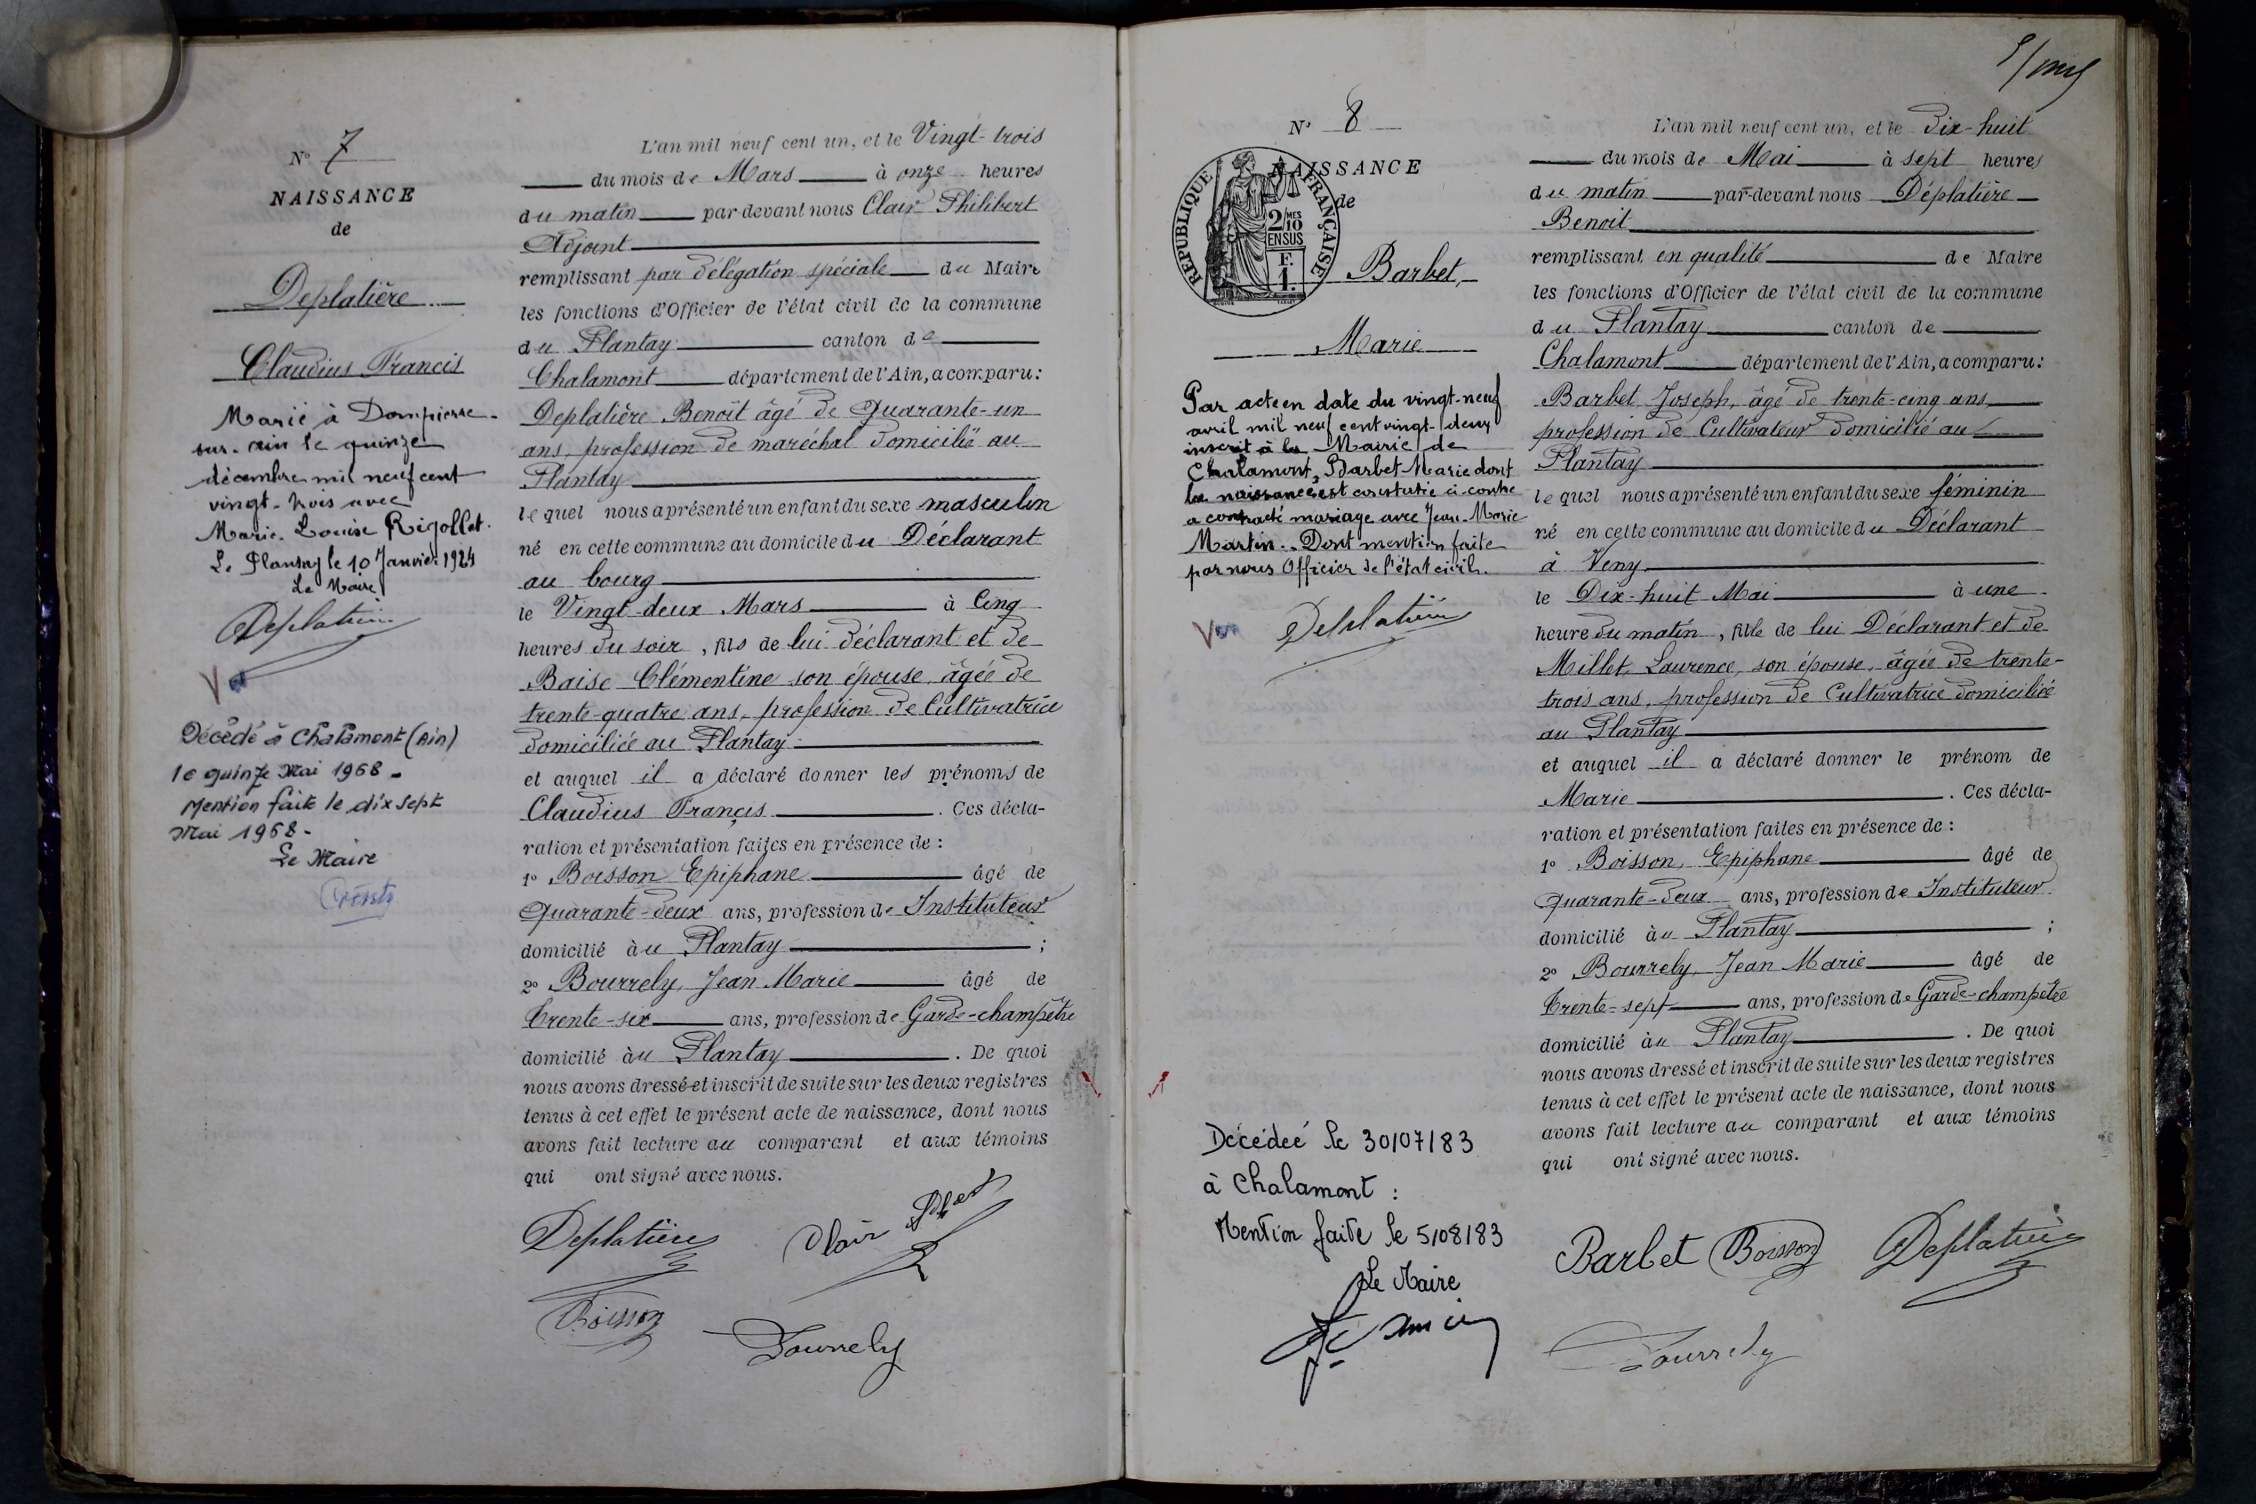 N° 7
NAISSANCE
de
Deplatière
Claudius Francis
Marié à Dompierre-
sur-ain le quinze
décembre mil neuf cent
vingt-trois avec
Marie-Louise Rigollet.
Le Plantay le 10 Janvier 1924
Le Maire
Deplatière
Vu
Décédé à Chalamont (Ain)
le quinze Mai 1968 -
Mention faite le dix sept
Mai 1968 -
Le Maire
L'an mil neuf cent un, et le Vingt-trois
du mois de Mars à onze heures
du matin par-devant nous Clair Philibert
Adjoint
remplissant par délégation spéciale du Maire
les fonctions d'Officier de l'état civil de la commune
du Plantay canton de
Chalamont département de l'Ain, a comparu:
Deplatière Benoît âgé de Quarante-un
ans, profession de maréchal domicilié au
Plantay
lequel nous a présenté un enfant du sexe masculin
né en cette commune au domicile du Déclarant
au bourg
le Vingt-deux Mars à Cinq
heures du soir, fils de lui déclarant et de
Baise Clémentine son épouse, âgée de
trente-quatre ans, profession de Cultivatrice
domiciliée au Plantay
et auquel il a déclaré donner les prénoms de
Claudius Françis. Ces décla-
ration et présentation faites en présence de :
1° Boisson Epiphane âgé de
Quarante-deux ans, profession de Instituteur
domicilié àu Plantay ;
2° Bourrely, Jean Marie âgé de
Trente-six ans, profession de Garde-champêtre
domicilié àu Plantay. De quoi
nous avons dressé et inscrit de suite sur les deux registres
tenus à cet effet le présent acte de naissance, dont nous
avons fait lecture au comparant et aux témoins
qui ont signé avec nous.
Deplatière Clair Phbert
Boisson
Bourrely
5/
N° 8
NAISSANCE
de
RÉPUBLIQUE FRANÇAISE
2/10 MES
EN SUS
F.
1.
Barbet,
Marie
Par acte en date du vingt-neuf
avril mil neuf cent vingt-deux
inscrit à la Mairie de
Chalamont, Barbet Marie dont
la naissance est constatée ci-contre
a contracté mariage avec Jean-Marie
Martin. Dont mention faite
par nous Officier de l'état civil.
Deplatière
Vu
Décédeé le 30/07/83
à Chalamont :
Mention faite le 5/08/83
Le Maire
L'an mil neuf cent un, et le Dix-huit
du mois de Mai à sept heures
du matin par-devant nous Déplatière
Benoit
remplissant en qualité de Maire
les fonctions d'Officier de l'état civil de la commune
du Plantay canton de
Chalamont département de l'Ain, a comparu:
Barbet Joseph, âgé de trente-cinq ans,
profession de Cultivateur domicilié au
Plantay
lequel nous a présenté un enfant du sexe féminin
né en cette commune au domicile du Déclarant
à Veny
le Dix-huit Mai à une
heure du matin, fille de lui Déclarant et de
Millet, Laurence, son épouse, âgée de trente-
trois ans, profession de Cultivatrice domiciliée
au Plantay
et auquel il a déclaré donner le prénom de
Marie. Ces décla-
ration et présentation faites en présence de :
1° Boisson, Epiphane âgé de
Quarante-deux ans, profession de Instituteur
domicilié àu Plantay ;
2° Bourrely, Jean Marie âgé de
Trente-sept ans, profession de Garde-champêtre
domicilié àu Plantay. De quoi
nous avons dressé et inscrit de suite sur les deux registres
tenus à cet effet le présent acte de naissance, dont nous
avons fait lecture au comparant et aux témoins
qui ont signé avec nous.
Barbet Boisson Deplatière
Bourrely